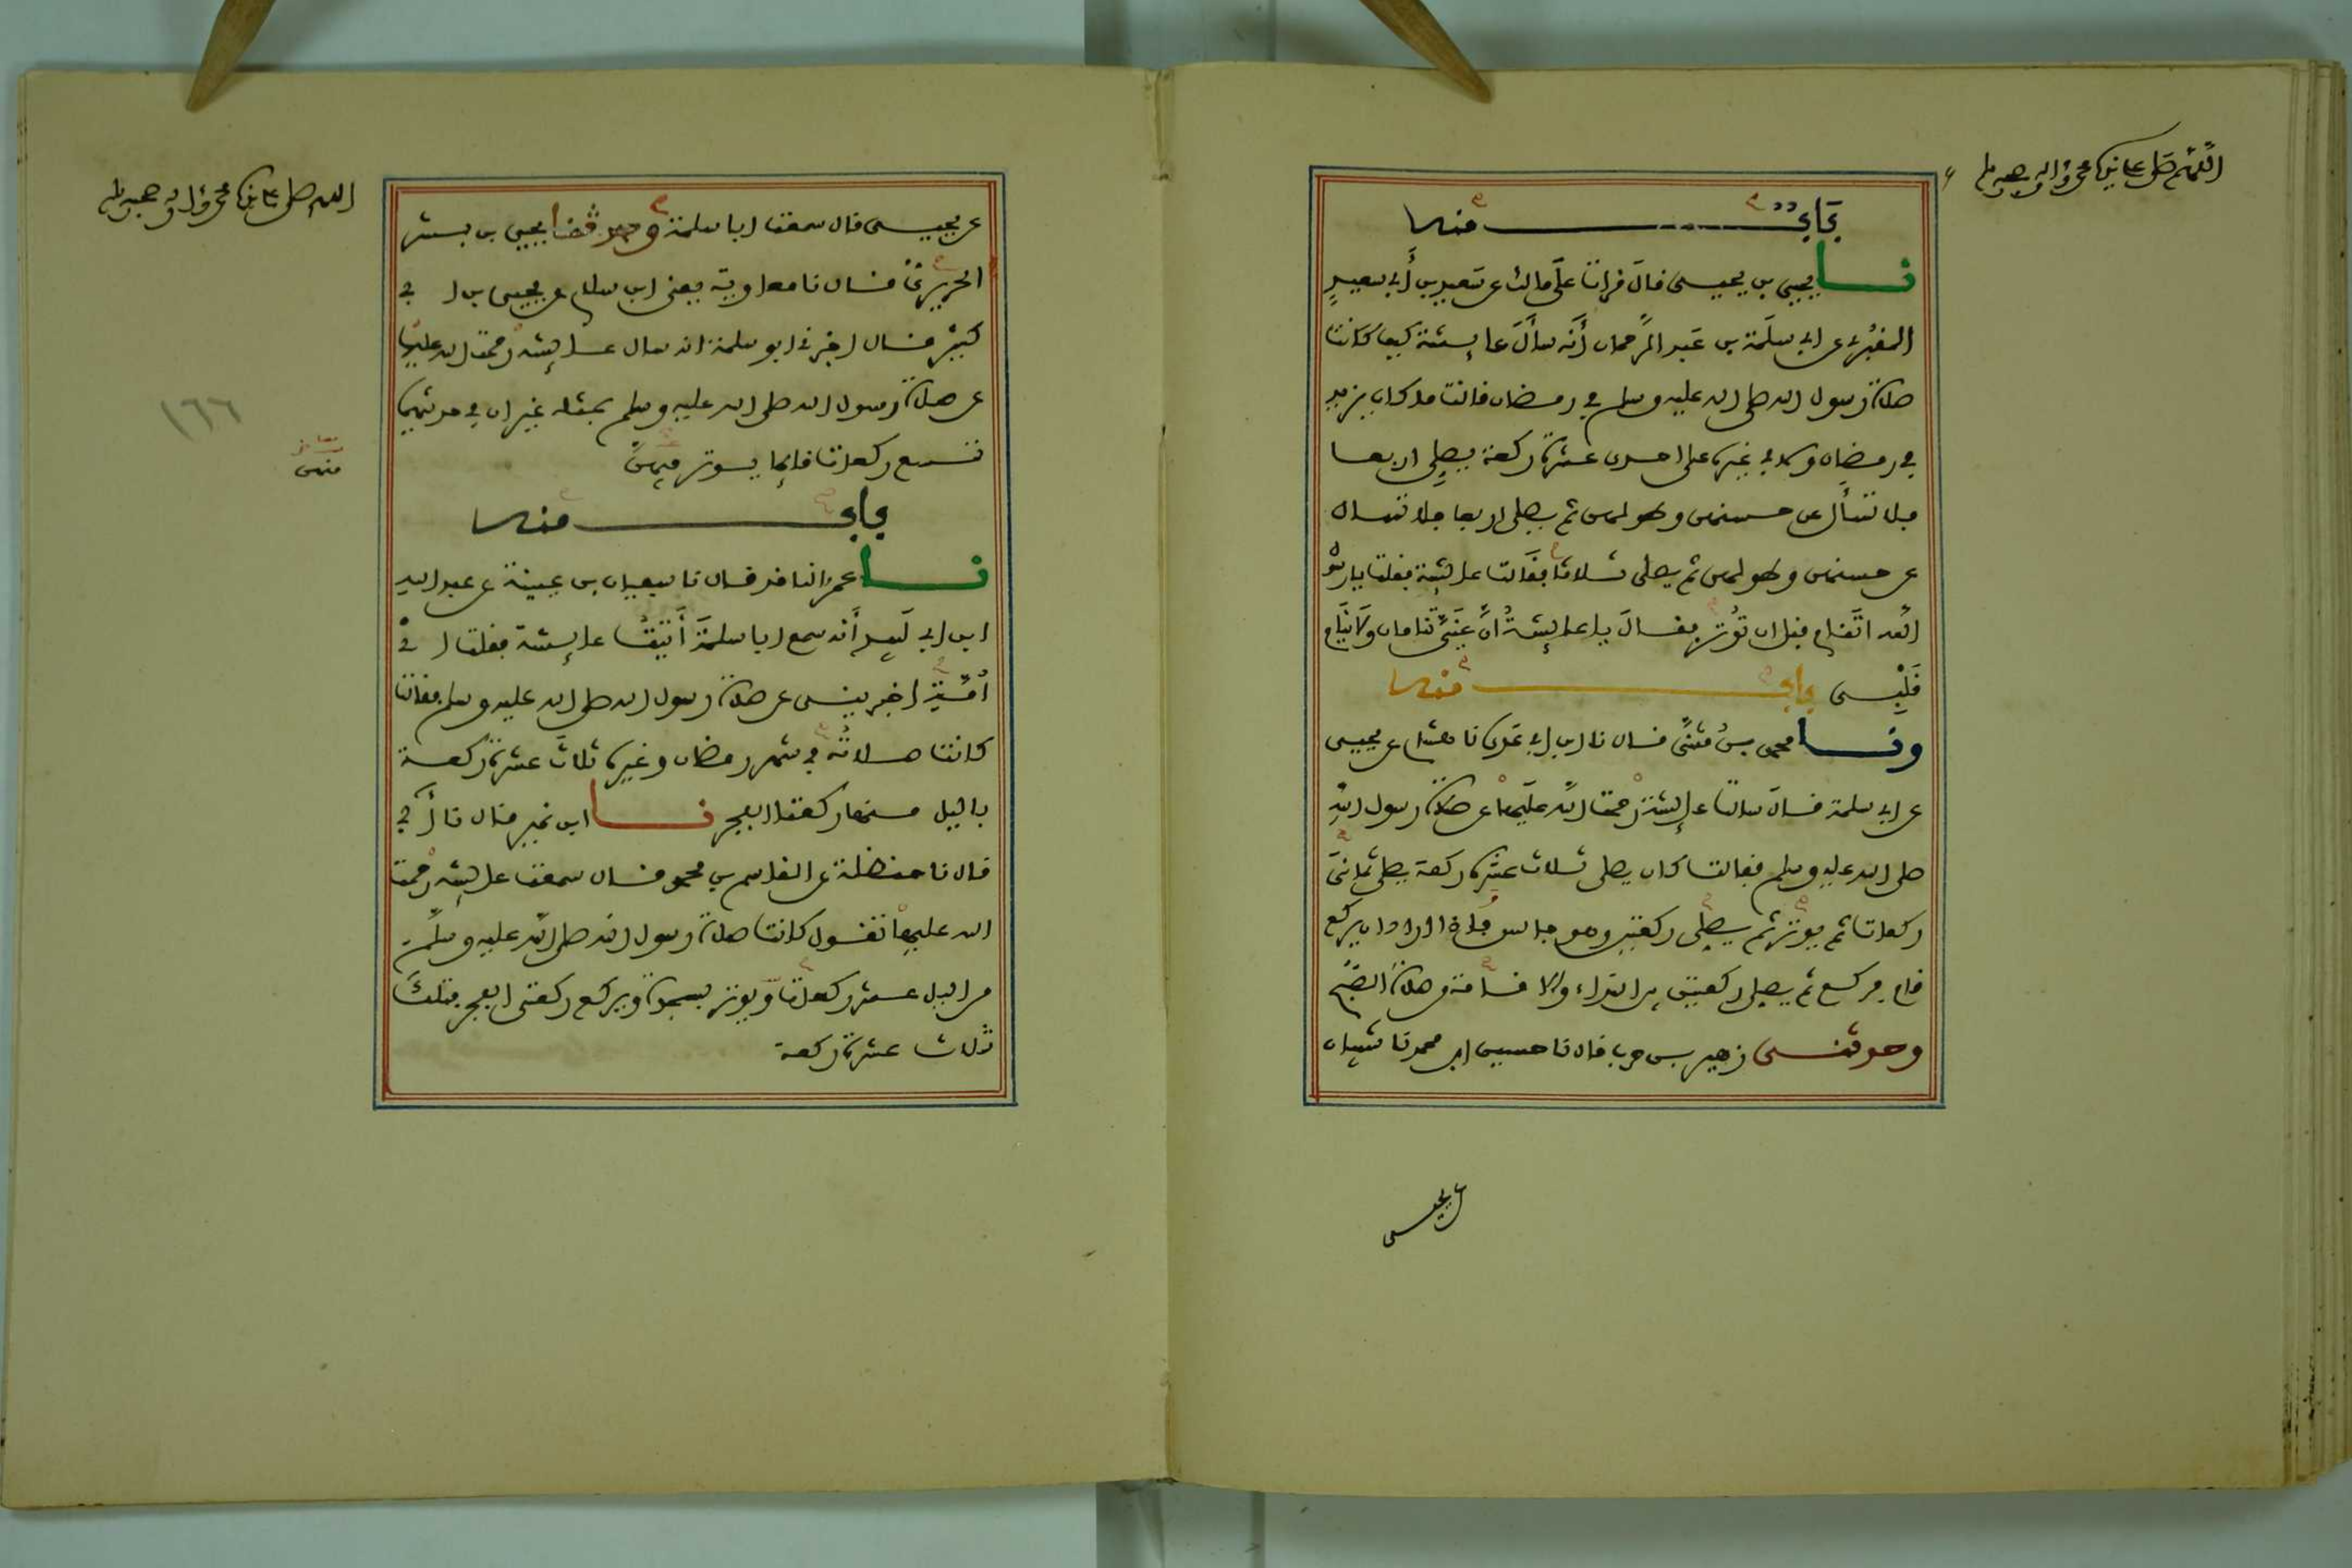 اللهم صل على نبينا محمد وءاله وصحبه وسلم
باب منه
نا يحيى بن يحيى قال قرات على مالك عن سعيد بن أبي سعيد
المقبري عن ابي سلمة بن عبد الرحمان أنه سأل عايشة كيف كانت
صلاة رسول الله صلى الله عليه وسلم في رمضان قالت ما كان يزيد
في رمضان ولا في غيره على احدى عشرة ركعة يصلي اربعا
فلا تسأل عن حسنهن وطولهن ثم يصلي اربعا فلا تسال
عن حسنهن وطولهن ثم يصلي ثلاثا فقالت عايشة فقلت يا رسول
الله اتنام قبل ان توتر فقال يا عايشة ان عيني تنامان ولا ينام
قلبي باب منه
ونا محمد بن مثنى قال نا ابن ابي عدي نا هشام عن يحيى
عن ابي سلمة قال سالت عايشة رحمت الله عليها عن صلاة رسول الله
صلى الله عليه وسلم فقالت كان يصلي ثلاث عشرة ركعة يصلي ثماني
ركعات ثم يوتر ثم يصلي ركعتين وهو جالس فإذا اراد ان يركع
قام فركع ثم يصلي ركعتين بين النداء والاقامة من صلاة الصبح
وحدثني زهير بن حرب قال نا حسين ابن محمد نا شيبان
عن يحيى
اللهم صل على نبينا محمد وءاله وصحبه وسلم
عن يحيى قال سمعت ابا سلمة وحدثنا يحيى بن بشر
الحريري قال نا معاوية يعني ابن سلام عن يحيى بن ابي
كثير قال اخبرني ابو سلمة انه سال عايشة رحمت الله عليها
عن صلاة رسول الله صلى الله عليه وسلم بمثله غير ان في حديثهما
تسع ركعات قايما يوتر فيهن
منهن
١٦٦
باب منه
نا عمرو الناقد قال نا سفيان بن عيينة عن عبد الله
ابن ابي لبيد أنه سمع ابا سلمة أتيت عايشة فقلت اي
أمه اخبريني عن صلاة رسول الله صلى الله عليه وسلم فقالت
كانت صلاته في شهر رمضان وغيره ثلاث عشرة ركعة
بالليل منها ركعتا الفجر نا ابن نمير قال نا أبي
قال نا حنظلة عن القاسم بن محمد قال سمعت عايشة رحمت
الله عليها تقول كانت صلاة رسول الله صلى الله عليه وسلم
من الليل عشر ركعات ويوتر بسجدة ويركع ركعتي الفجر فتلك
ثلاث عشرة ركعة